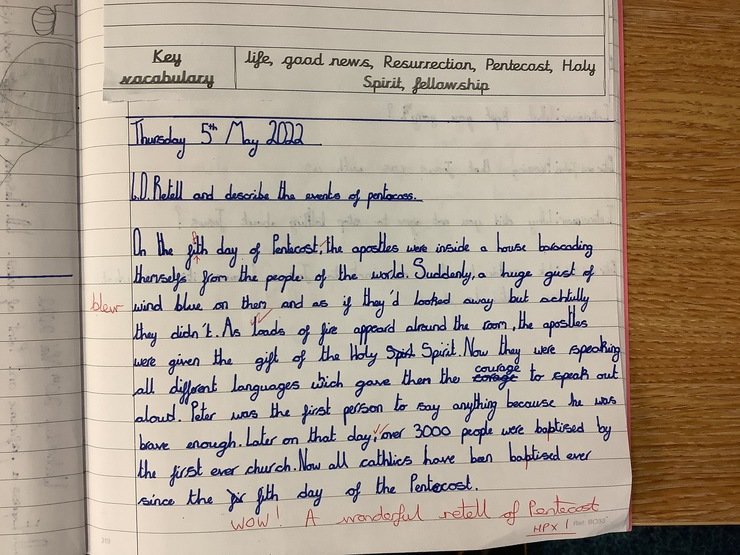 Key vocabulary
life, good news, Resurrection, Pentecost, Holy
Spirit, fellowship
Thursday 5th May 2022
L.O. Retell and describe the events of pentacoss.
On the fith day of Pentacost, the apostles were inside a house barocading
themselfs from the people of the world. Suddenly, a huge gust of
blew
wind blue on them and as if they'd looked away but achtully
they didn't. As loads of fire appeard alraund the room, the apostles
were given the gift of the Holy Spirit. Now they were speaking
all different languages which gave them the courage to speak out
aloud. Peter was the first person to say anything because he was
brave enough. Later on that day, over 3000 people were baptised by
the first ever church. Now all cathlics have been baptised ever
since the fith day of the Pentecost.
WOW! A wonderful retell of Pentecost
HPx 1